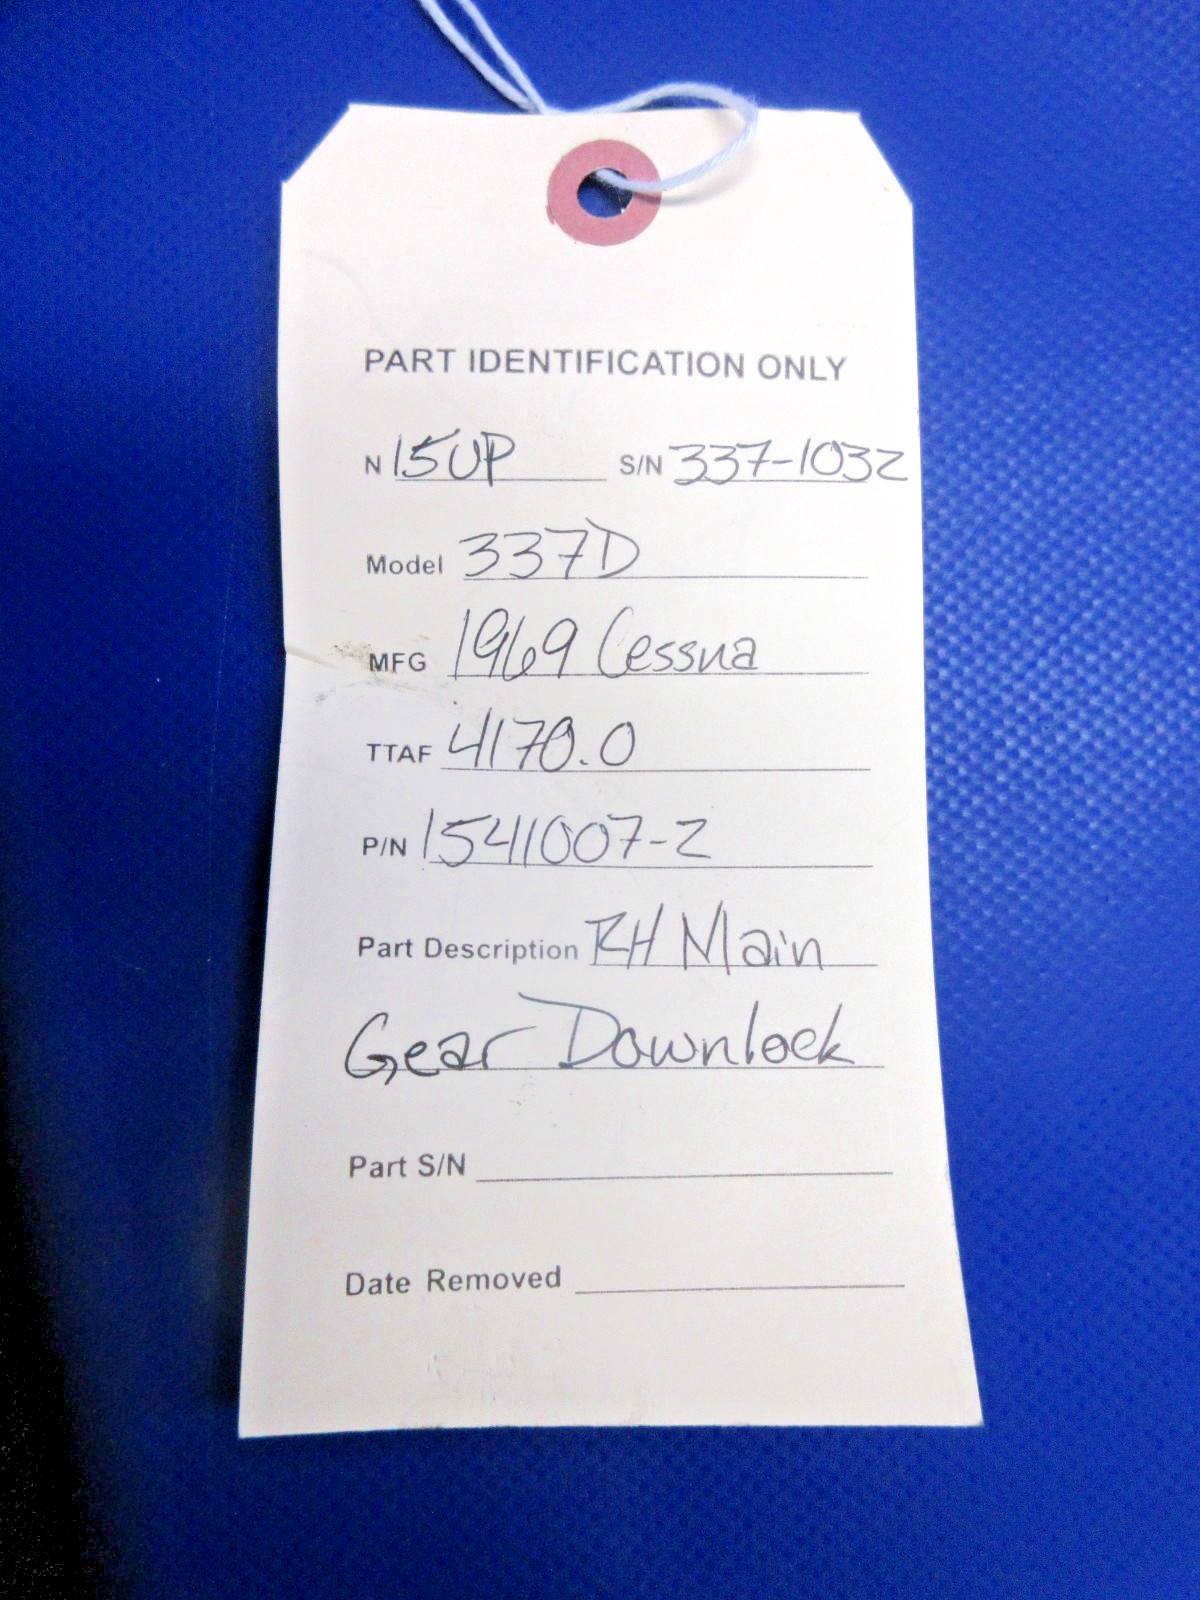 PART IDENTIFICATION ONLY
N 15UP S/N 337-1032
Model 337D
MFG 1969 Cessna
TTAF 4170.0
P/N 1541007-2
Part Description RH Main
Gear Downlock
Part S/N
Date Removed